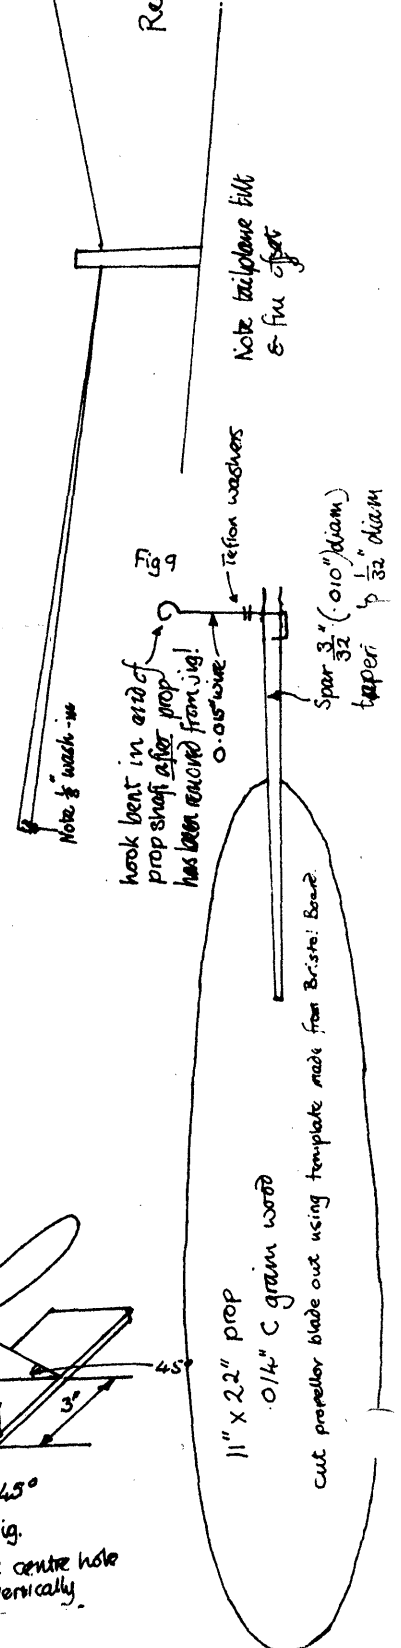 Re
Note tailplane tilt
& fin offset
Note 1/8" wash-in
Fig 9
hook bent in end of
prop shaft after prop
has been removed from jig!
0.015" wire
Teflon washers
Spar 3/32" (.010" diam)
taper 1/32" diam
11" x 22" prop
.014" C grain wood
cut propellor blade out using template made from Bristol Board.
45°
3"
45°
ig.
centre hole
vertically